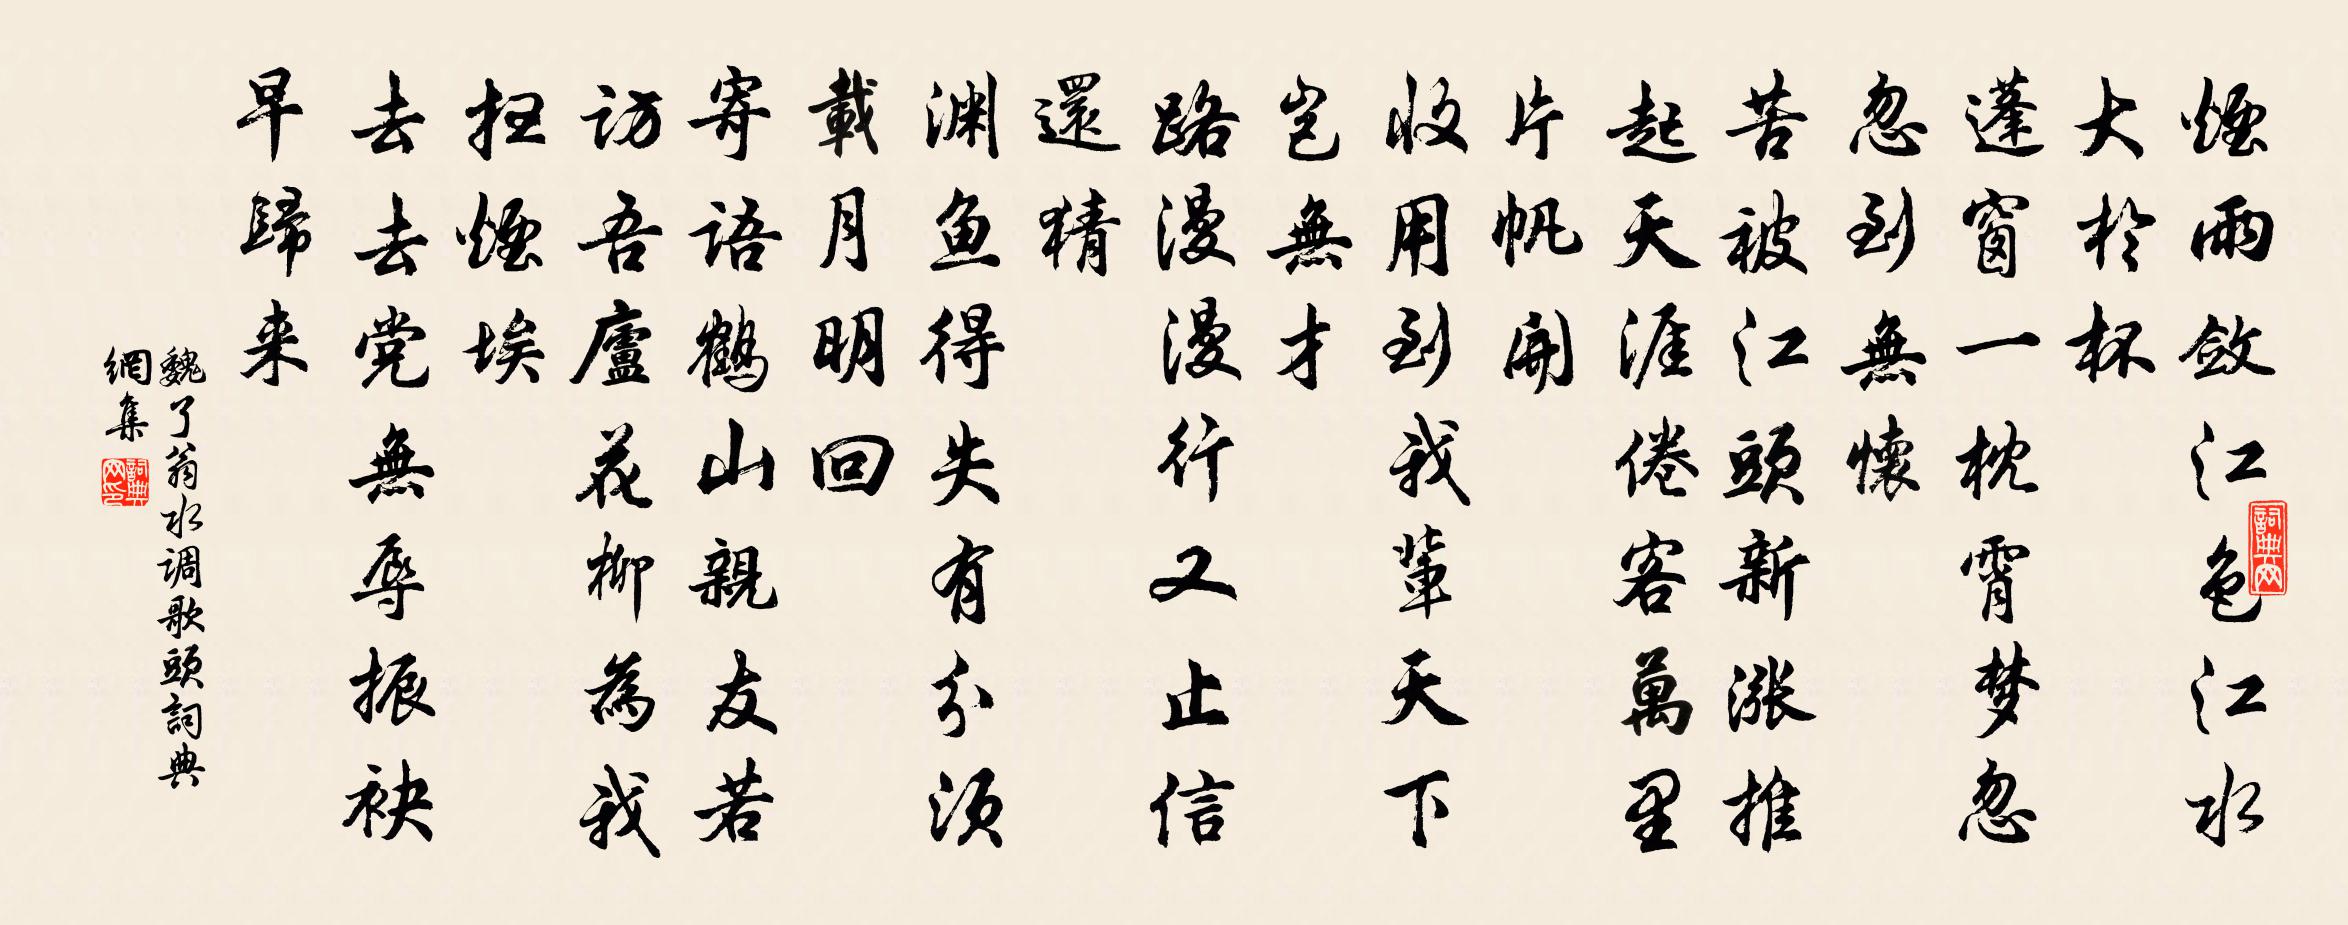 煙雨斂江色江水
大於杯
蓬窗一枕霄梦忽
忽到無懷
苦被江頭新漲推
起天涯倦客萬里
片帆開
收用到我輩天下
岂無才
路漫漫行又止信
還猜
渊鱼得失有分须
載月明回
寄語鶴山親友若
訪吾廬花柳為我
煙埃
去去党無辱振袂
早歸来
魏了翁水调歌頭詞典
網集
詞典网
詞典网印